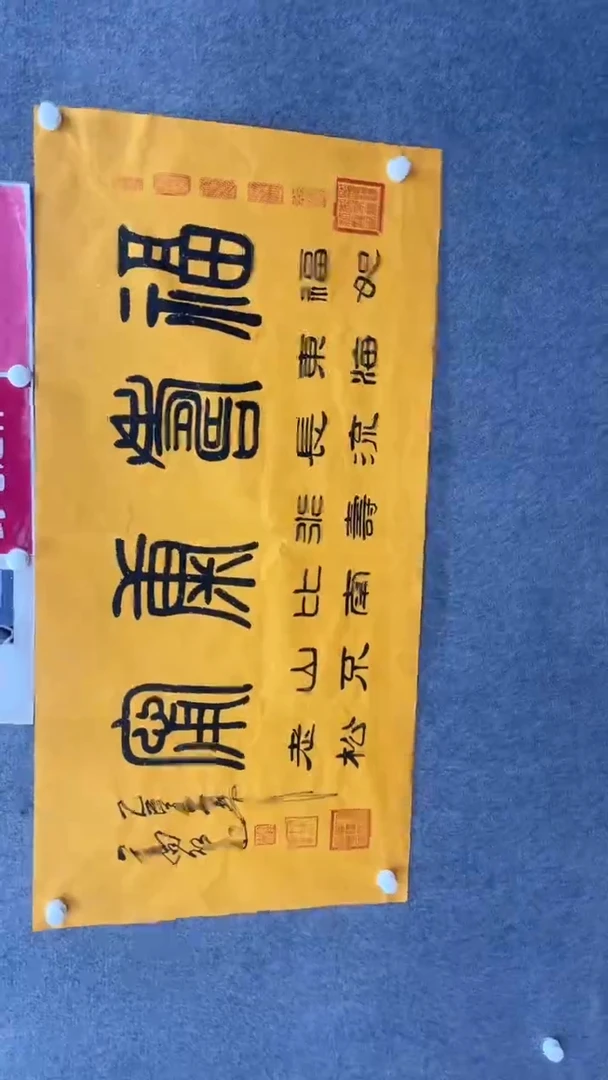 福壽康寧
福如
東海
長流
水壽
比南
山不
老松